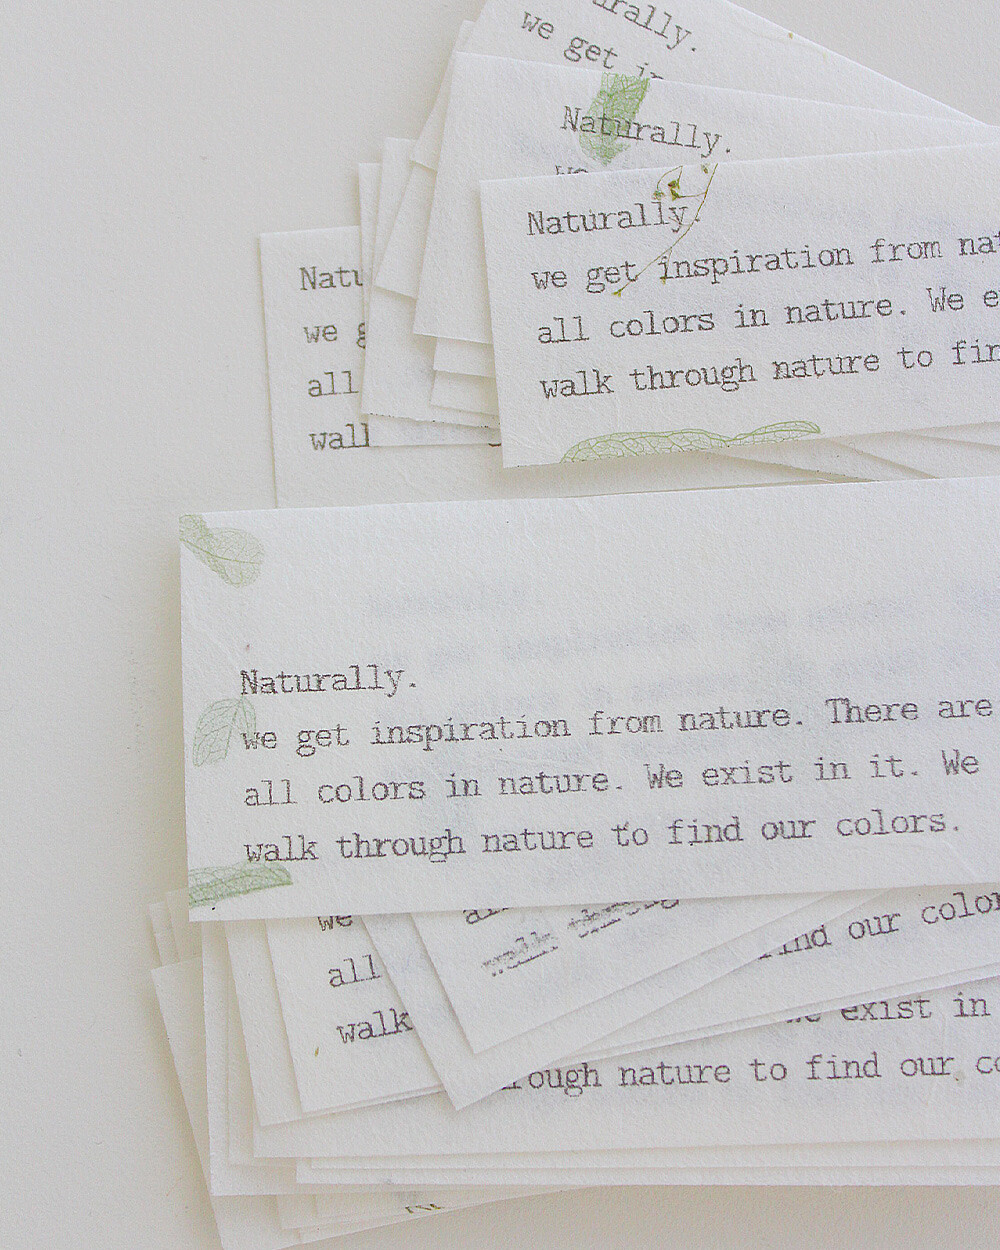 urally.
we get in
Naturally.
we
Naturally.
we get inspiration from nat
all colors in nature. We e
walk through nature to fin
Natu
we g
all
wall
Naturally.
we get inspiration from nature. There are
all colors in nature. We exist in it. We
walk through nature to find our colors.
we
all
walk
all
walk throug
find our color
We exist in
rough nature to find our co